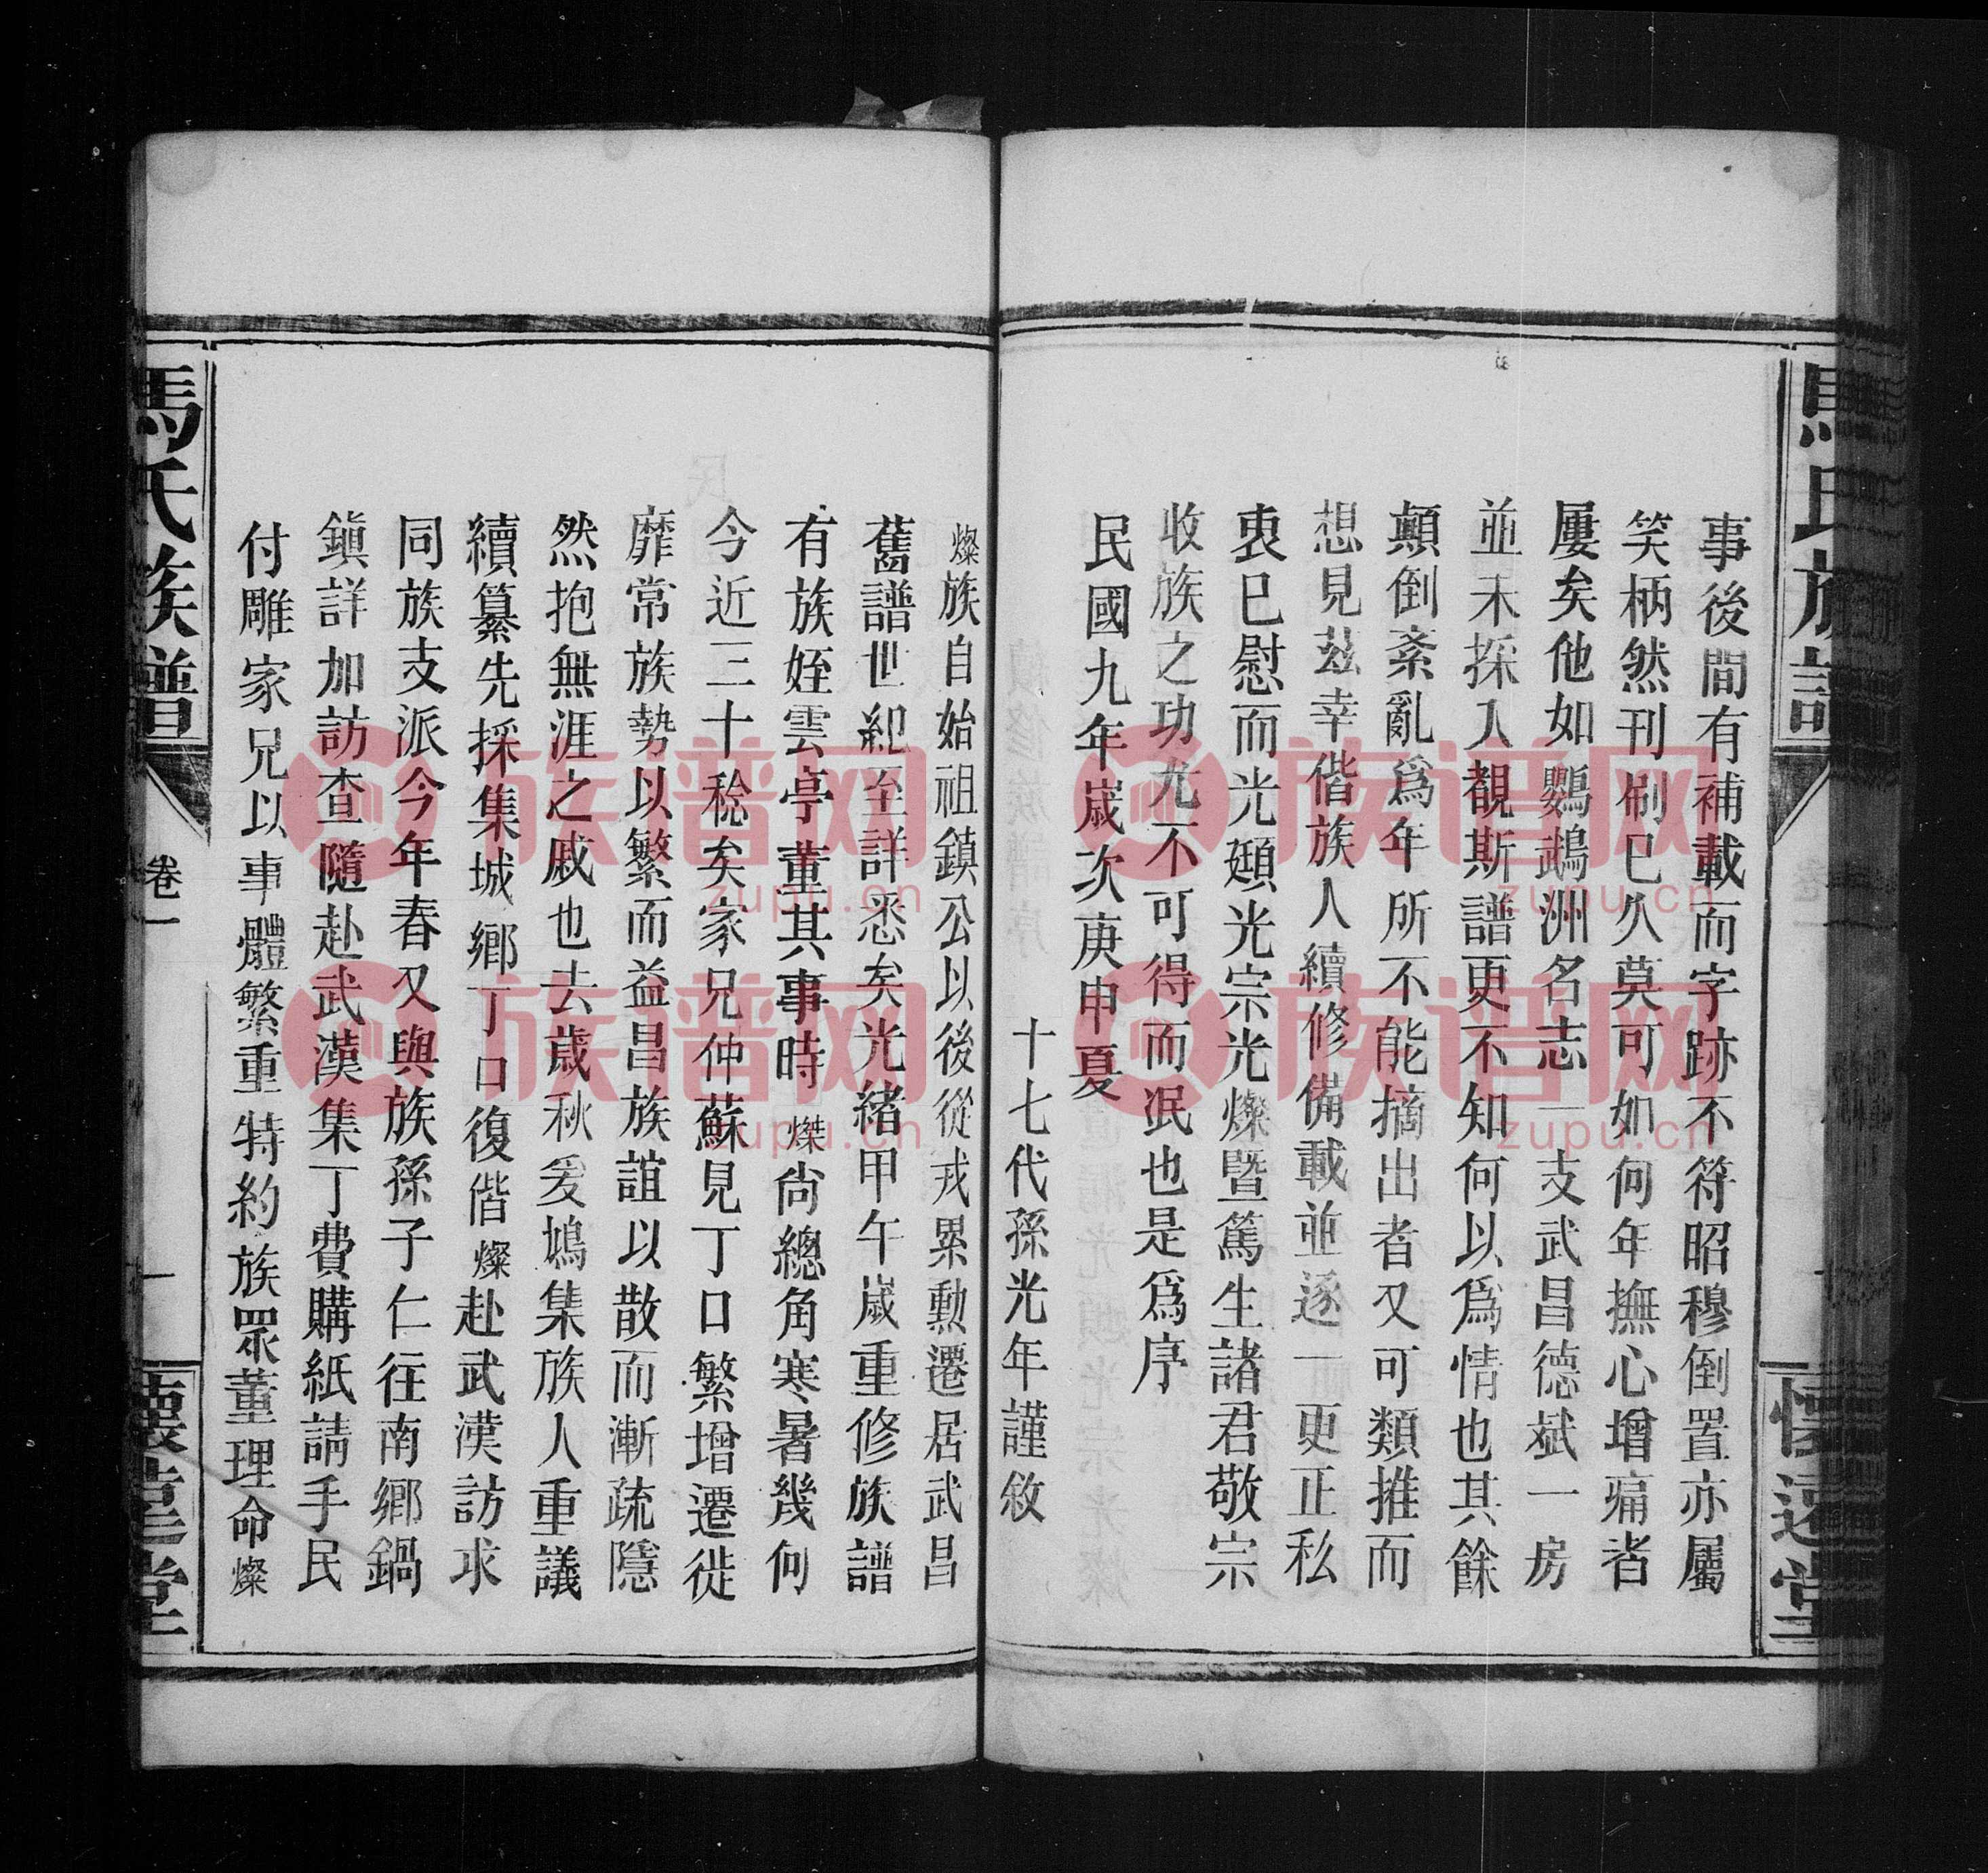 馬氏族譜
懷遠堂
事後間有補載而字跡不符昭穆倒置亦屬
笑柄然刊刷已久莫可如何年撫心增痛者
屢矣他如鸚鵡洲名志一支武昌德斌一房
並未採入覩斯譜更不知何以爲情也其餘
顛倒紊亂爲年所不能摘出者又可類推而
想見茲幸偕族人續修備載並逐一更正私
衷已慰而光頲光宗光燦暨篤生諸君敬宗
收族之功尤不可得而泯也是爲序
民國九年歲次庚申夏
十七代孫光年謹敘
燦族自始祖鎮公以後從戎累勳遷居武昌
舊譜世紀至詳悉矣光緒甲午歲重修族譜
有族姪雲亭董其事時燦尙總角寒暑幾何
今近三十稔矣家兄仲蘇見丁口繁增遷徙
靡常族勢以繁而益昌族誼以散而漸疏隱
然抱無涯之戚也去歲秋爰鳩集族人重議
續纂先採集城鄉丁口復偕燦赴武漢訪求
同族支派今年春又與族孫子仁往南鄉鍋
鎮詳加訪查隨赴武漢集丁費購紙請手民
付雕家兄以事體繁重特約族眾董理命燦
馬氏族譜
卷一
一
懷遠堂
族谱网
zupu.cn
族谱网
zupu.cn
族谱网
zupu.cn
族谱网
zupu.cn